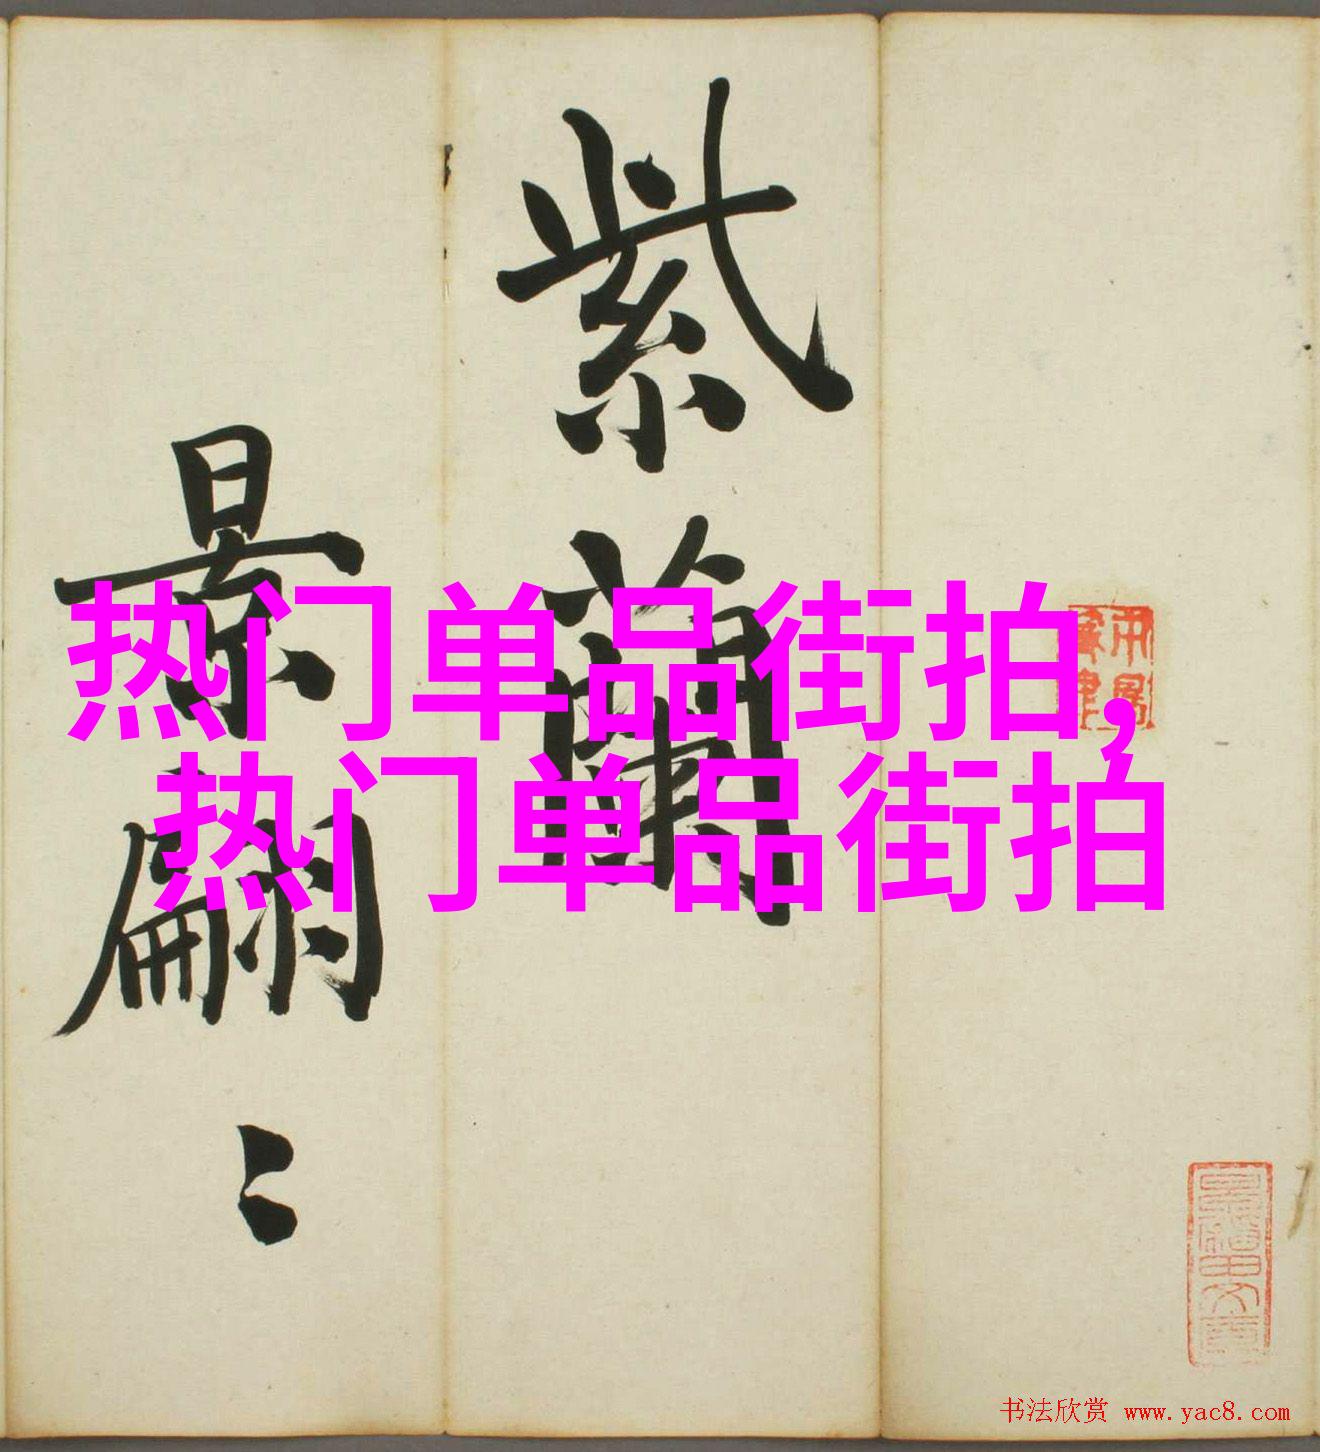 紫蘭
景翩〻
热门单品街拍,
热门单品街拍
书法欣赏 www.yac8.com